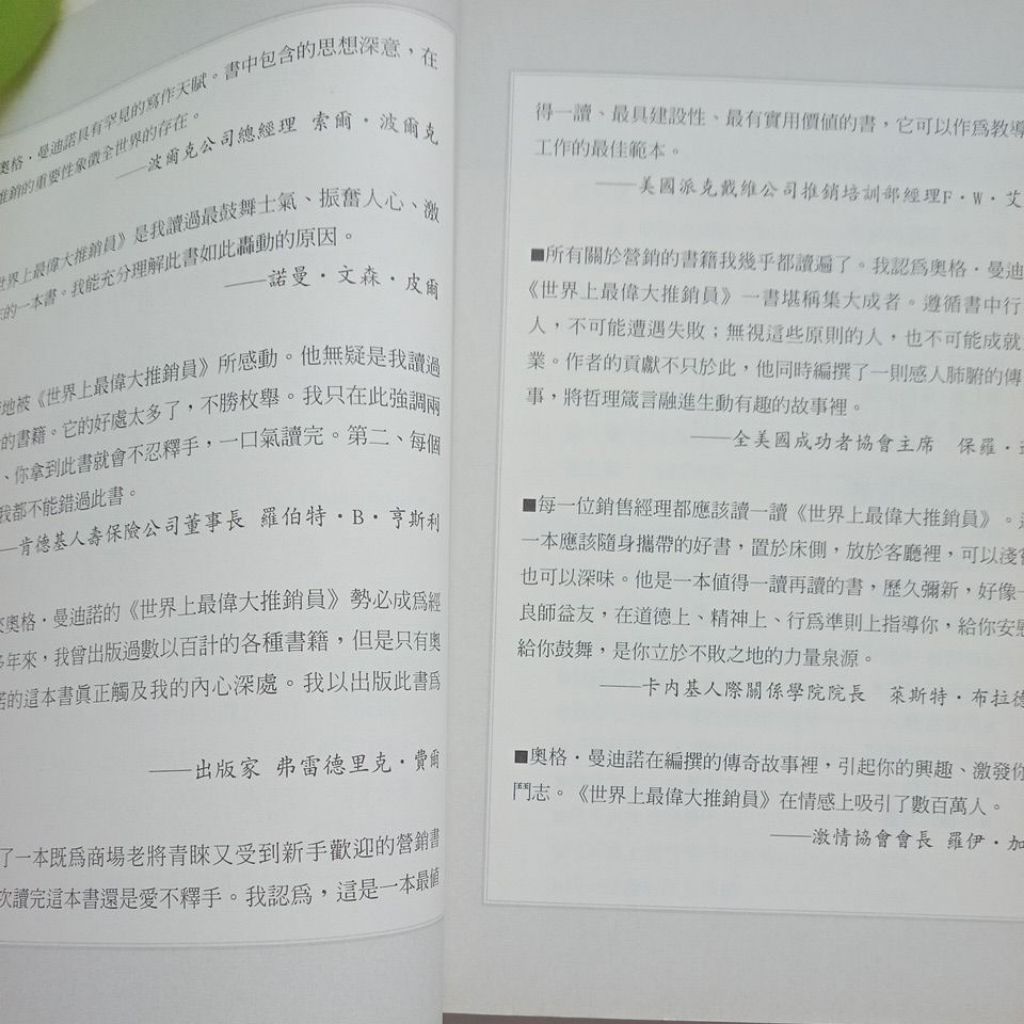 奧格・曼迪諾具有罕見的寫作天賦。書中包含的思想深意，在
推銷的重要性象徵全世界的存在。
——波爾克公司總經理 索爾・波爾克
世界上最偉大推銷員》是我讀過最鼓舞士氣、振奮人心、激
的一本書。我能充分理解此書如此轟動的原因。
——諾曼・文森・皮爾
地被《世界上最偉大推銷員》所感動。他無疑是我讀過
的書籍。它的好處太多了，不勝枚舉。我只在此強調兩
、你拿到此書就會不忍釋手，一口氣讀完。第二、每個
我都不能錯過此書。
——肯德基人壽保險公司董事長 羅伯特・B・亨斯利
奧格・曼迪諾的《世界上最偉大推銷員》勢必成爲經
多年來，我曾出版過數以百計的各種書籍，但是只有奧
諾的這本書眞正觸及我的內心深處。我以出版此書爲
——出版家 弗雷德里克・費爾
了一本既爲商場老將青睞又受到新手歡迎的營銷書
次讀完這本書還是愛不釋手。我認爲，這是一本最值
得一讀、最具建設性、最有實用價值的書，它可以作爲教導
工作的最佳範本。
——美國派克戴維公司推銷培訓部經理F・W・艾
■所有關於營銷的書籍我幾乎都讀遍了。我認爲奧格・曼迪
《世界上最偉大推銷員》一書堪稱集大成者。遵循書中行
人，不可能遭遇失敗；無視這些原則的人，也不可能成就
業。作者的貢獻不只於此，他同時編撰了一則感人肺腑的傳
事，將哲理箴言融進生動有趣的故事裡。
——全美國成功者協會主席 保羅・
■每一位銷售經理都應該讀一讀《世界上最偉大推銷員》。
一本應該隨身攜帶的好書，置於床側，放於客廳裡，可以淺嘗
也可以深味。他是一本值得一讀再讀的書，歷久彌新，好像一
良師益友，在道德上、精神上、行爲準則上指導你，給你安慰
給你鼓舞，是你立於不敗之地的力量泉源。
——卡內基人際關係學院院長 萊斯特・布拉德
■奧格・曼迪諾在編撰的傳奇故事裡，引起你的興趣、激發你
鬥志。《世界上最偉大推銷員》在情感上吸引了數百萬人。
——激情協會會長 羅伊・加